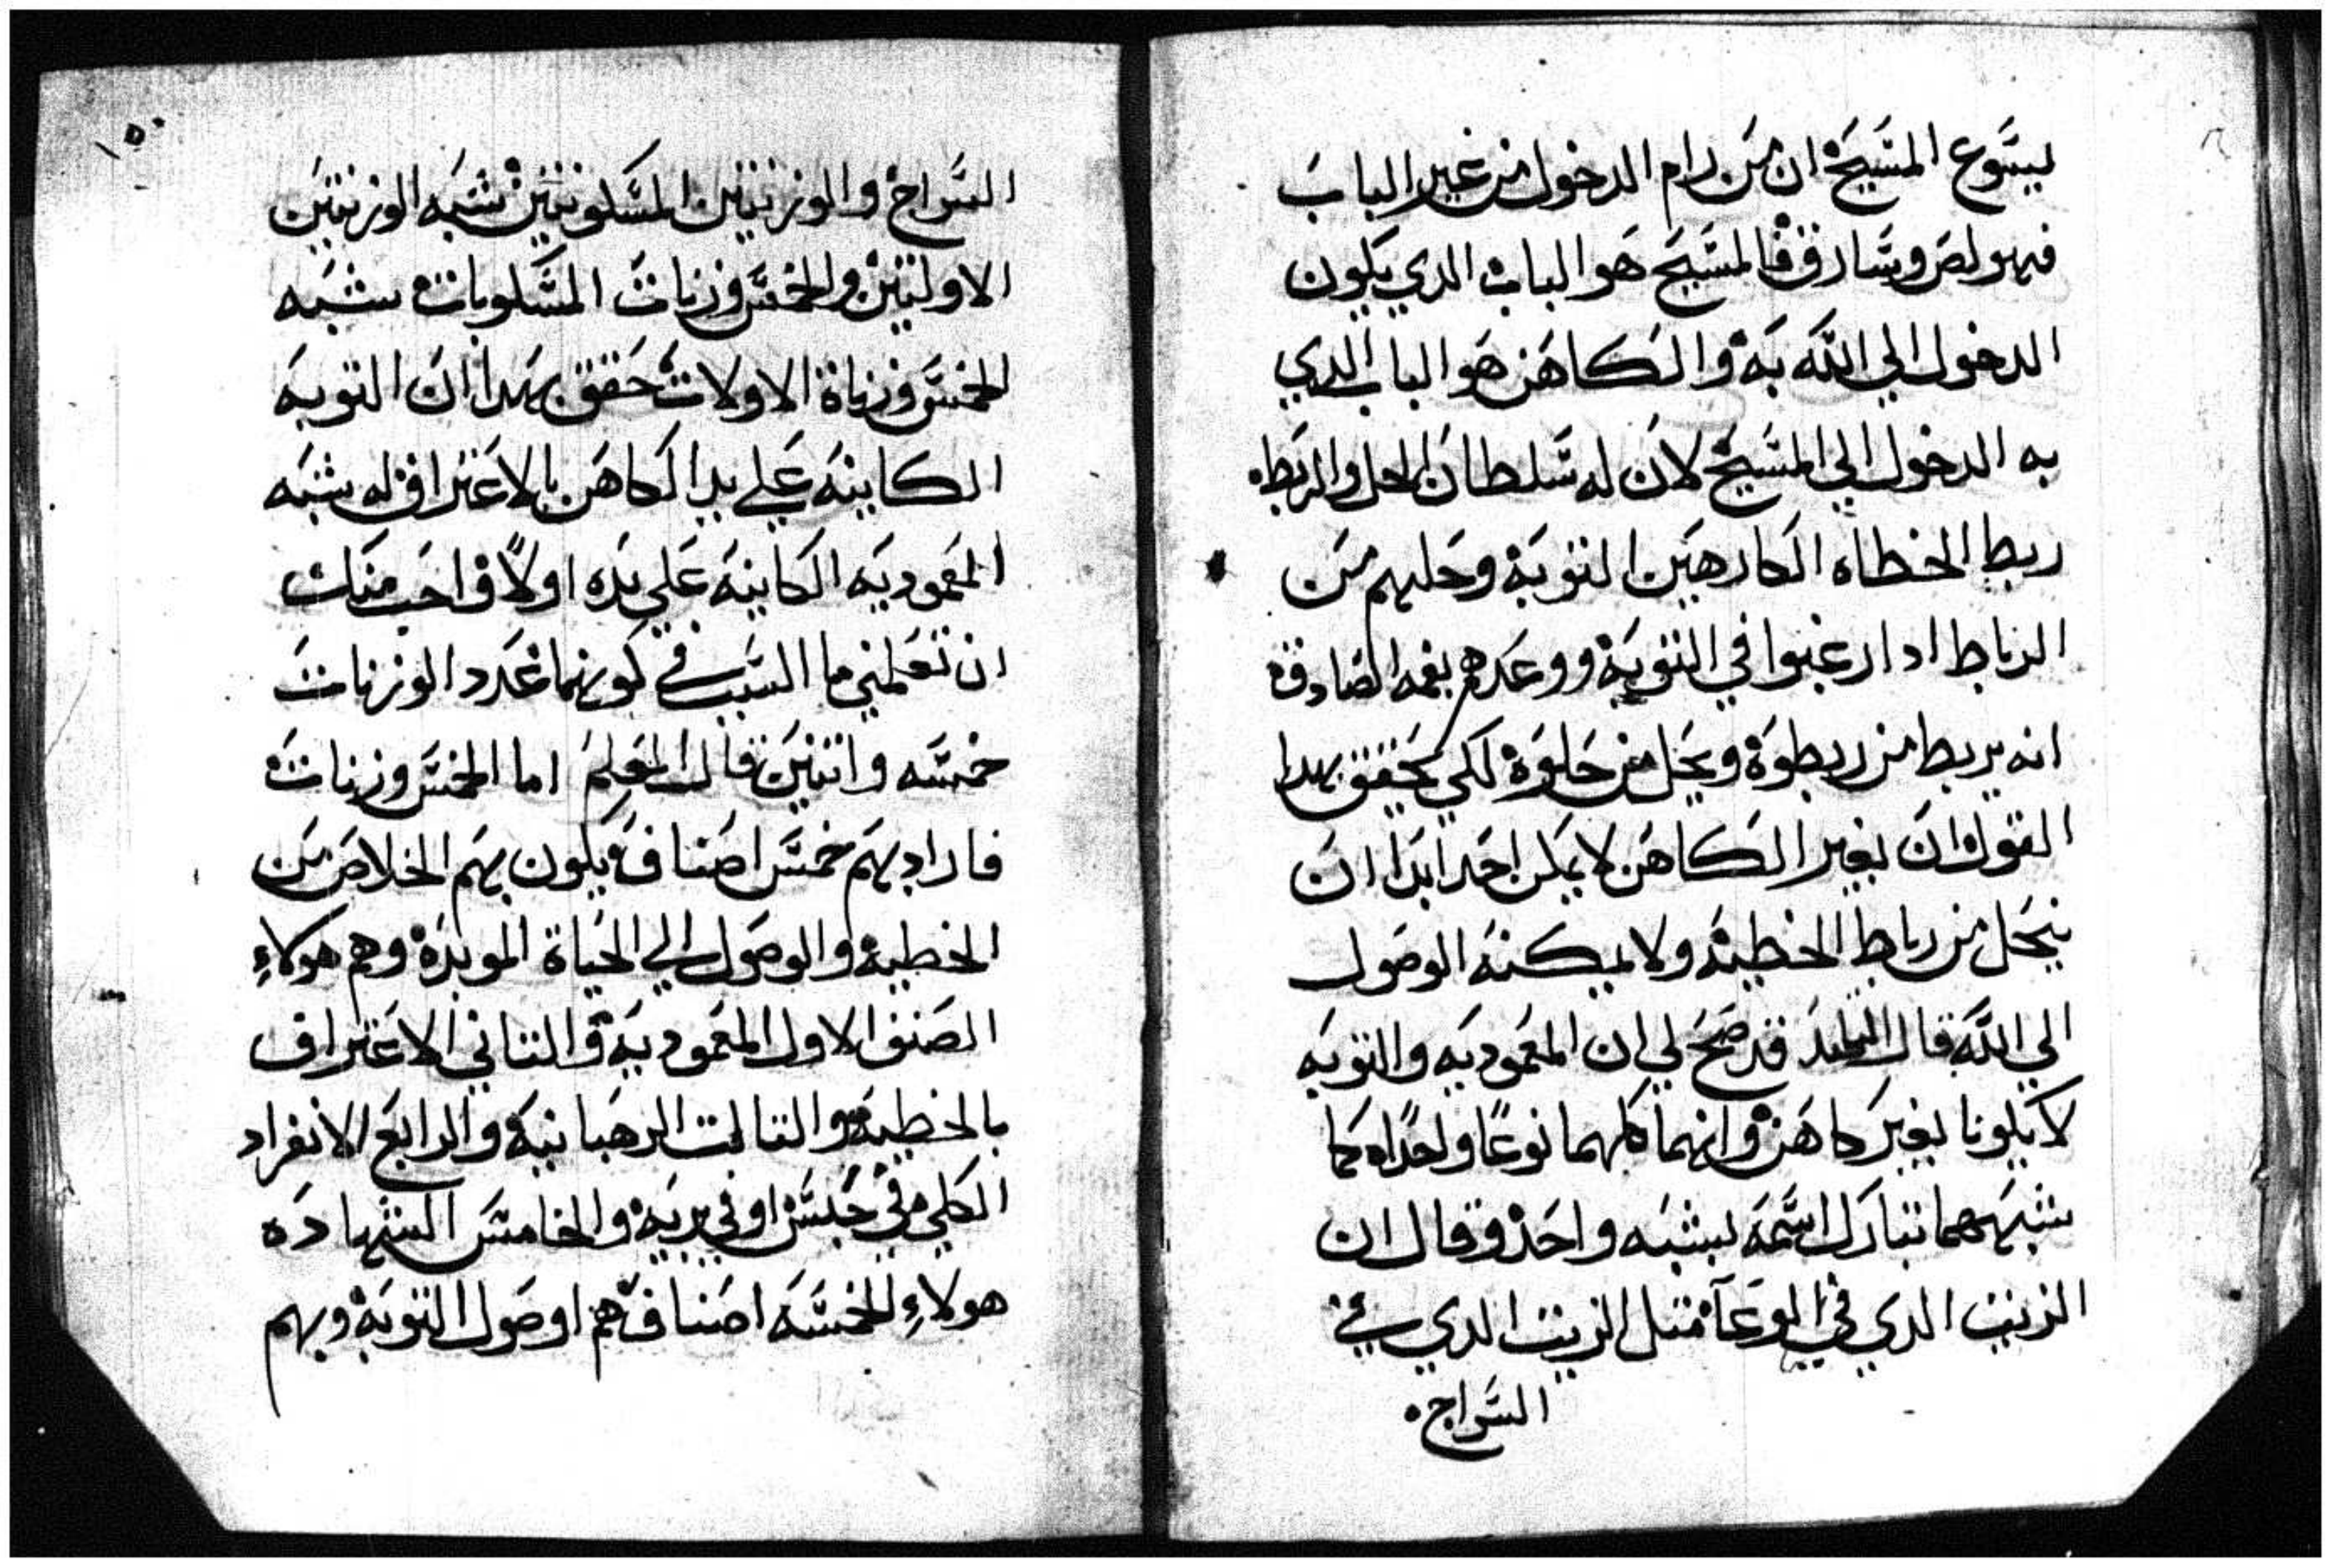 ليسوع المسيح ان من رام الدخول من غير الباب
فهو لص وسارق فالمسيح هو الباب الدي يكون
الدخول الي الله به والكاهن هو الباب الدي
به الدخول الي المسيح لان له سلطان الحل والربط
ربط الخطاه الكارهين التوبة وحلهم من
الرباط ادا رغبوا في التوبة ووعدهم بفمه الصادق
انه يربط من ربطوة ويحل من حلوة لكي يحقق بهدا
القول ان بغير الكاهن لا يمكن احدا ابدا ان
ينحل من رباط الخطية ولا يمكنه الوصول
الي الله قال التلميد قد صح لي ان المعموديه والتوبه
لا يكونا بغير كاهن وانهما كلهما نوعًا واحدًا كما
شبههما تبارك اسمه بشبه واحد وقال ان
الزيت الدي في الوعآ مثل الزيت الدي في
السراج
١٥٠
السراج والوزنتين المسكونتين شبه الوزنتين
الاولتين والخمس وزنات المسكوبات شبه
الخمس وزناة الاولات حقق بهدا ان التوبه
الكاينه علي يد الكاهن بالاعتراف له شبه
المعموديه الكاينه علي يده اولاً واحب منك
ان تعلمني ما السبب في كونهما عدد الوزنات
خمسه واتنين قال المعلم اما الخمس وزنات
فاراد بهم خمس اصناف يكون بهم الخلاص من
الخطية والوصول الي الحياة الموبدة وهم هولاءِ
الصنف الاول المعمودية والتاني الاعتراف
بالخطية والتالت الرهبانية والرابع الانفراد
الكلي في حبس او في برية والخامس الشهاده
هولاءِ الخمسه اصناف هم اوصول التوبة وبهم